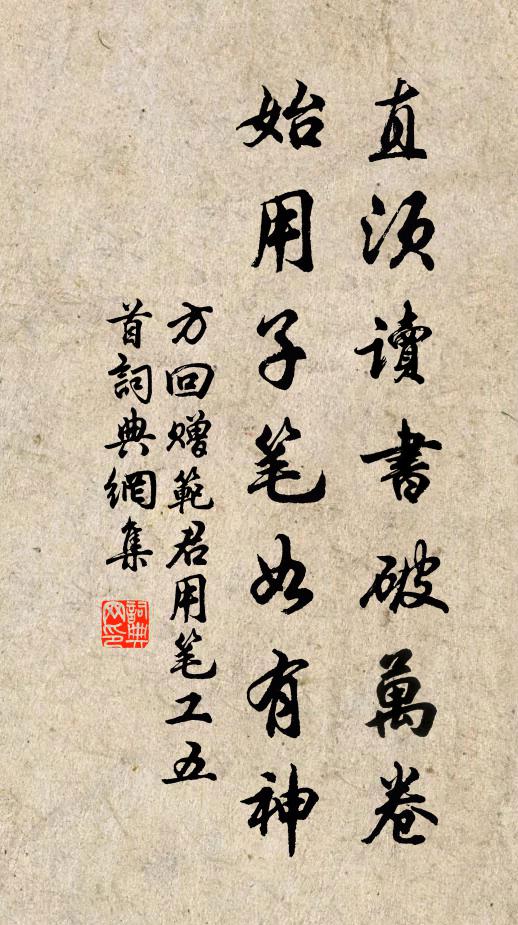 直须讀書破萬卷
始用子笔如有神
方回赠範君用笔工五
首詞典網集
詞典网印